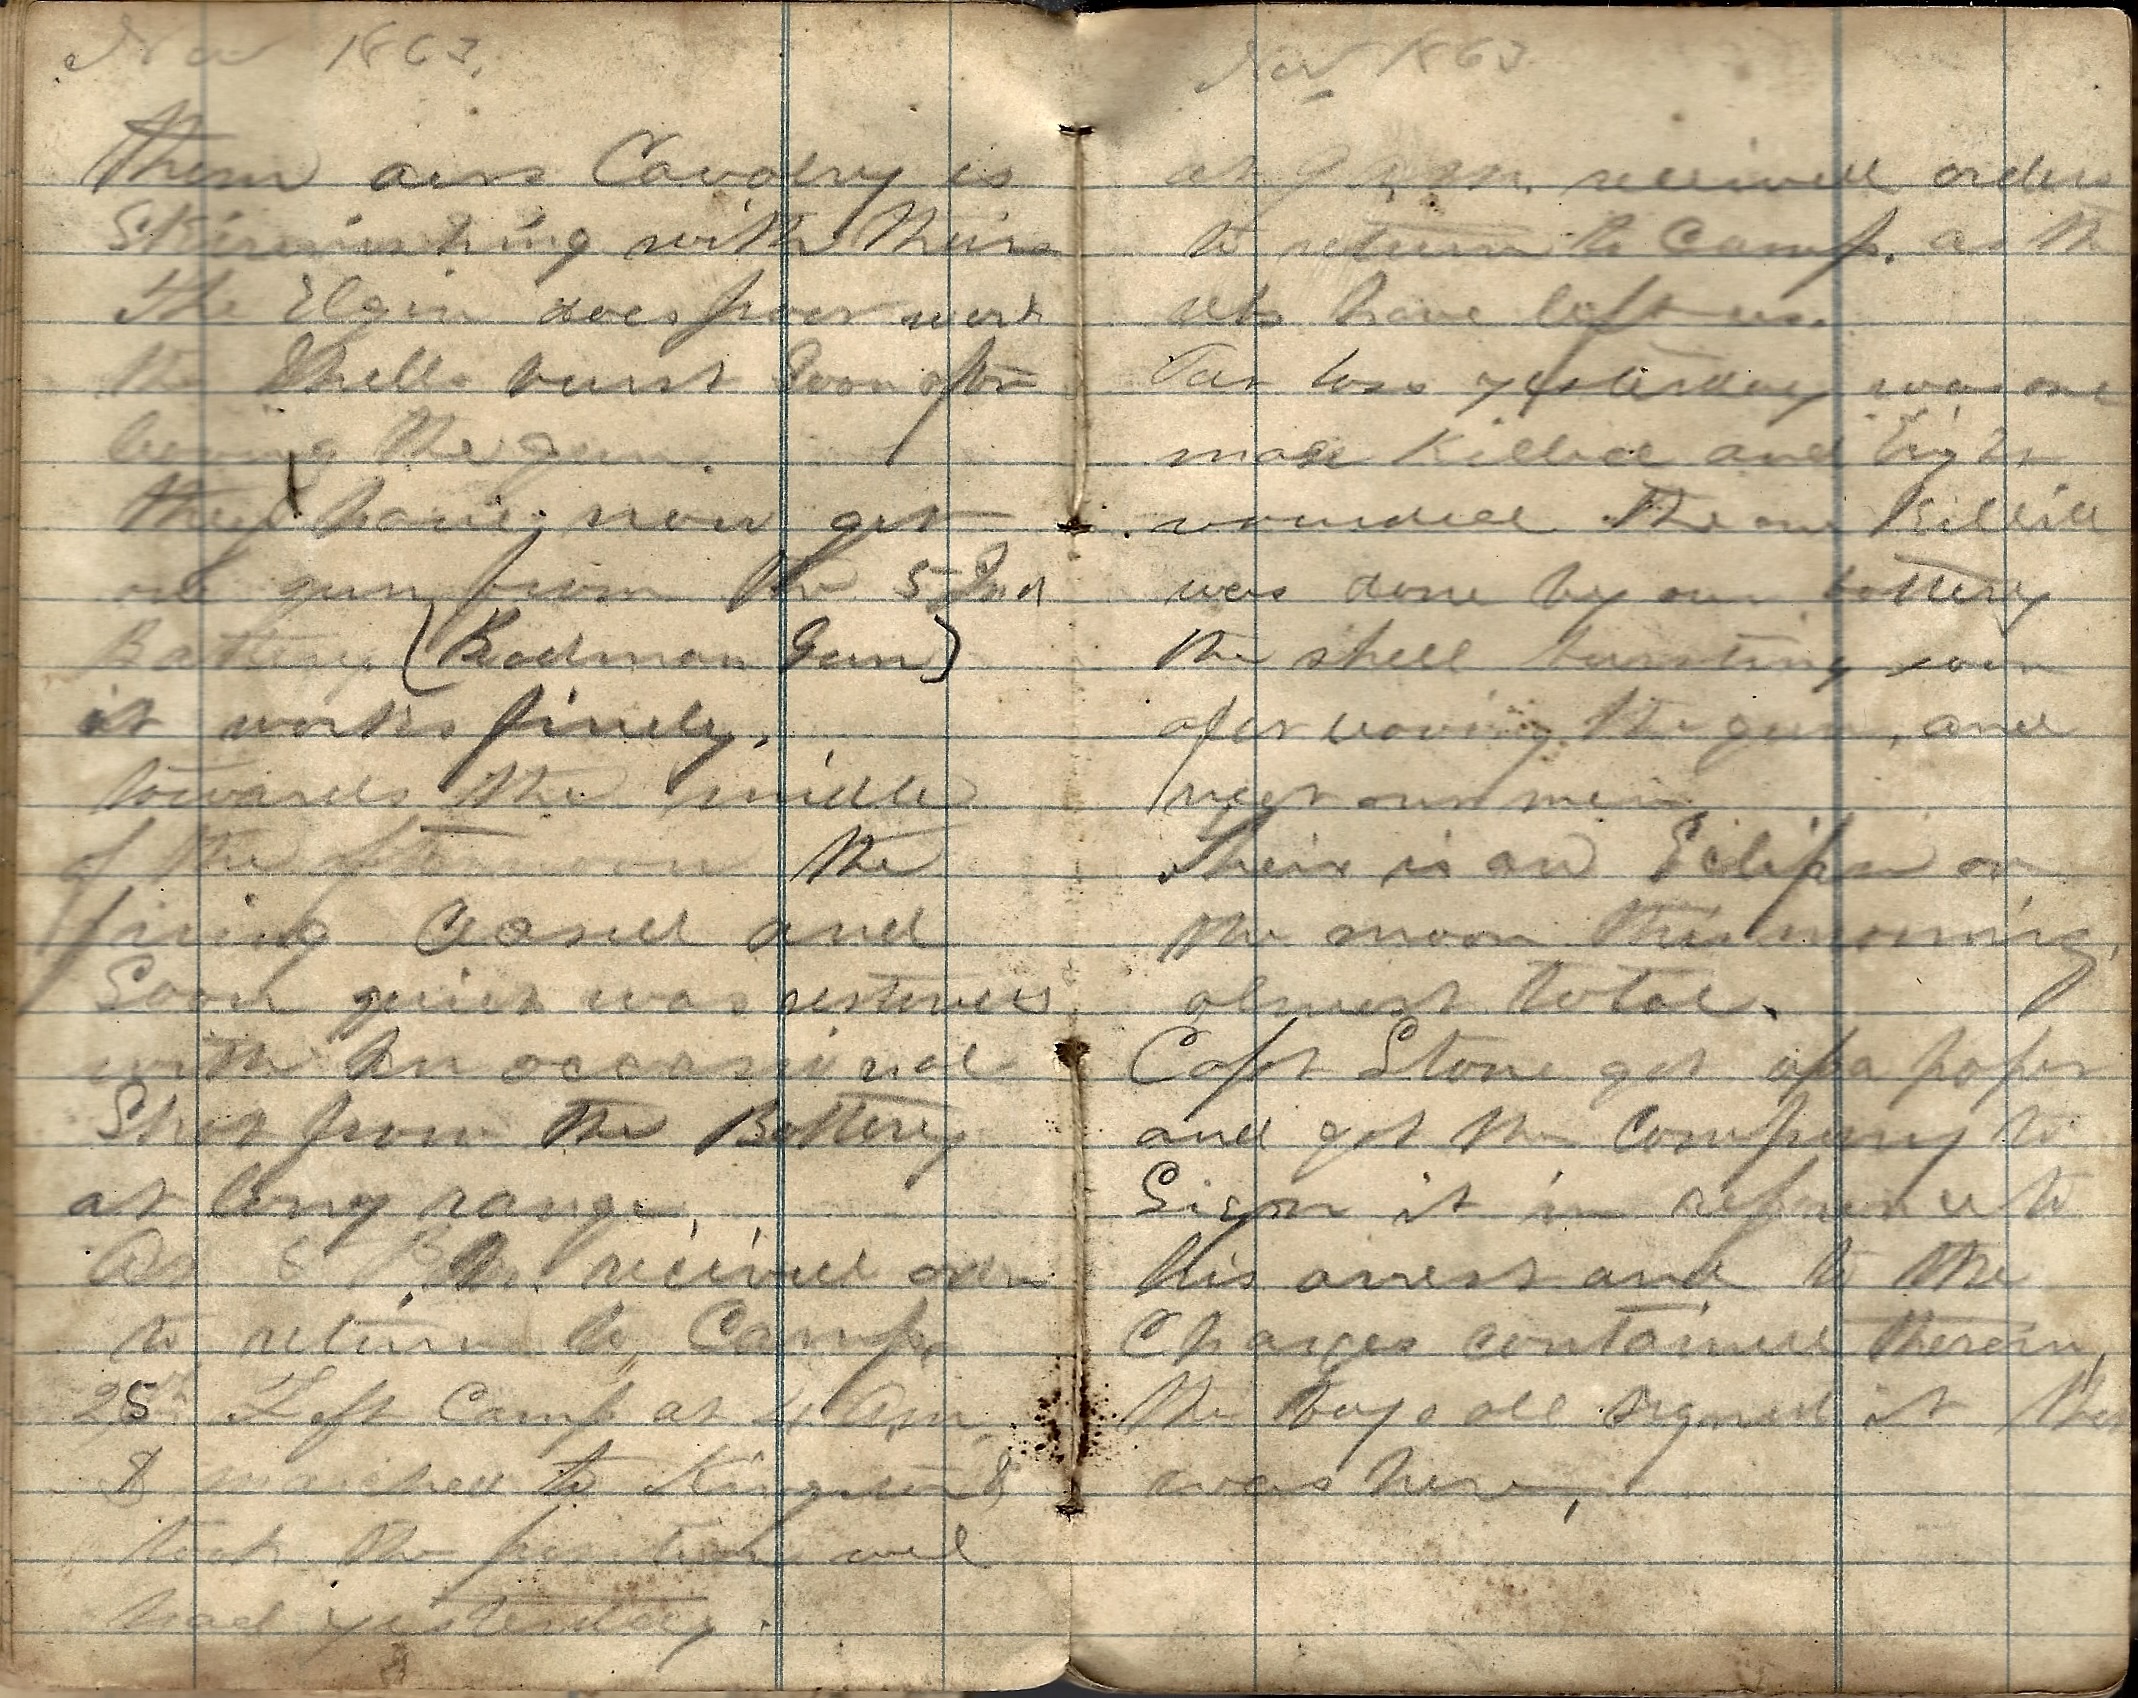 Nov 1863.
Them our Cavalry is
Skirmishing with theirs
The Elgin does poor work
the Shells burst soon after
leaving the gun.
they have now got
one gun from the 5 Ind
Battery (Rodman Gun)
it works finely.
towards the middle
of the afternoon the
firing Ceased and
Soon quiet was restored
with an occasional
Shot from the Battery
at long range.
At P.M. received orders
to return to Camp.
25th Left Camp at 4 A.m.
& marched to Kingston &
took the position we
had yesterday.
Nov 1863
at 9 a.m. received orders
to return to Camp. as the
rebs have left us.
Our loss yesterday was one
man Killed and Eight
wounded The one Killed
was done by our battery
the shell bursting soon
after leaving the gun, and
near our men
Their is an Eclipse on
the moon this morning,
almost total.
Capt Stone got up a paper
and got the Company to
Sign it in reference to
his arrest and to the
Charges contained therein,
the boys all signed it that
was here,